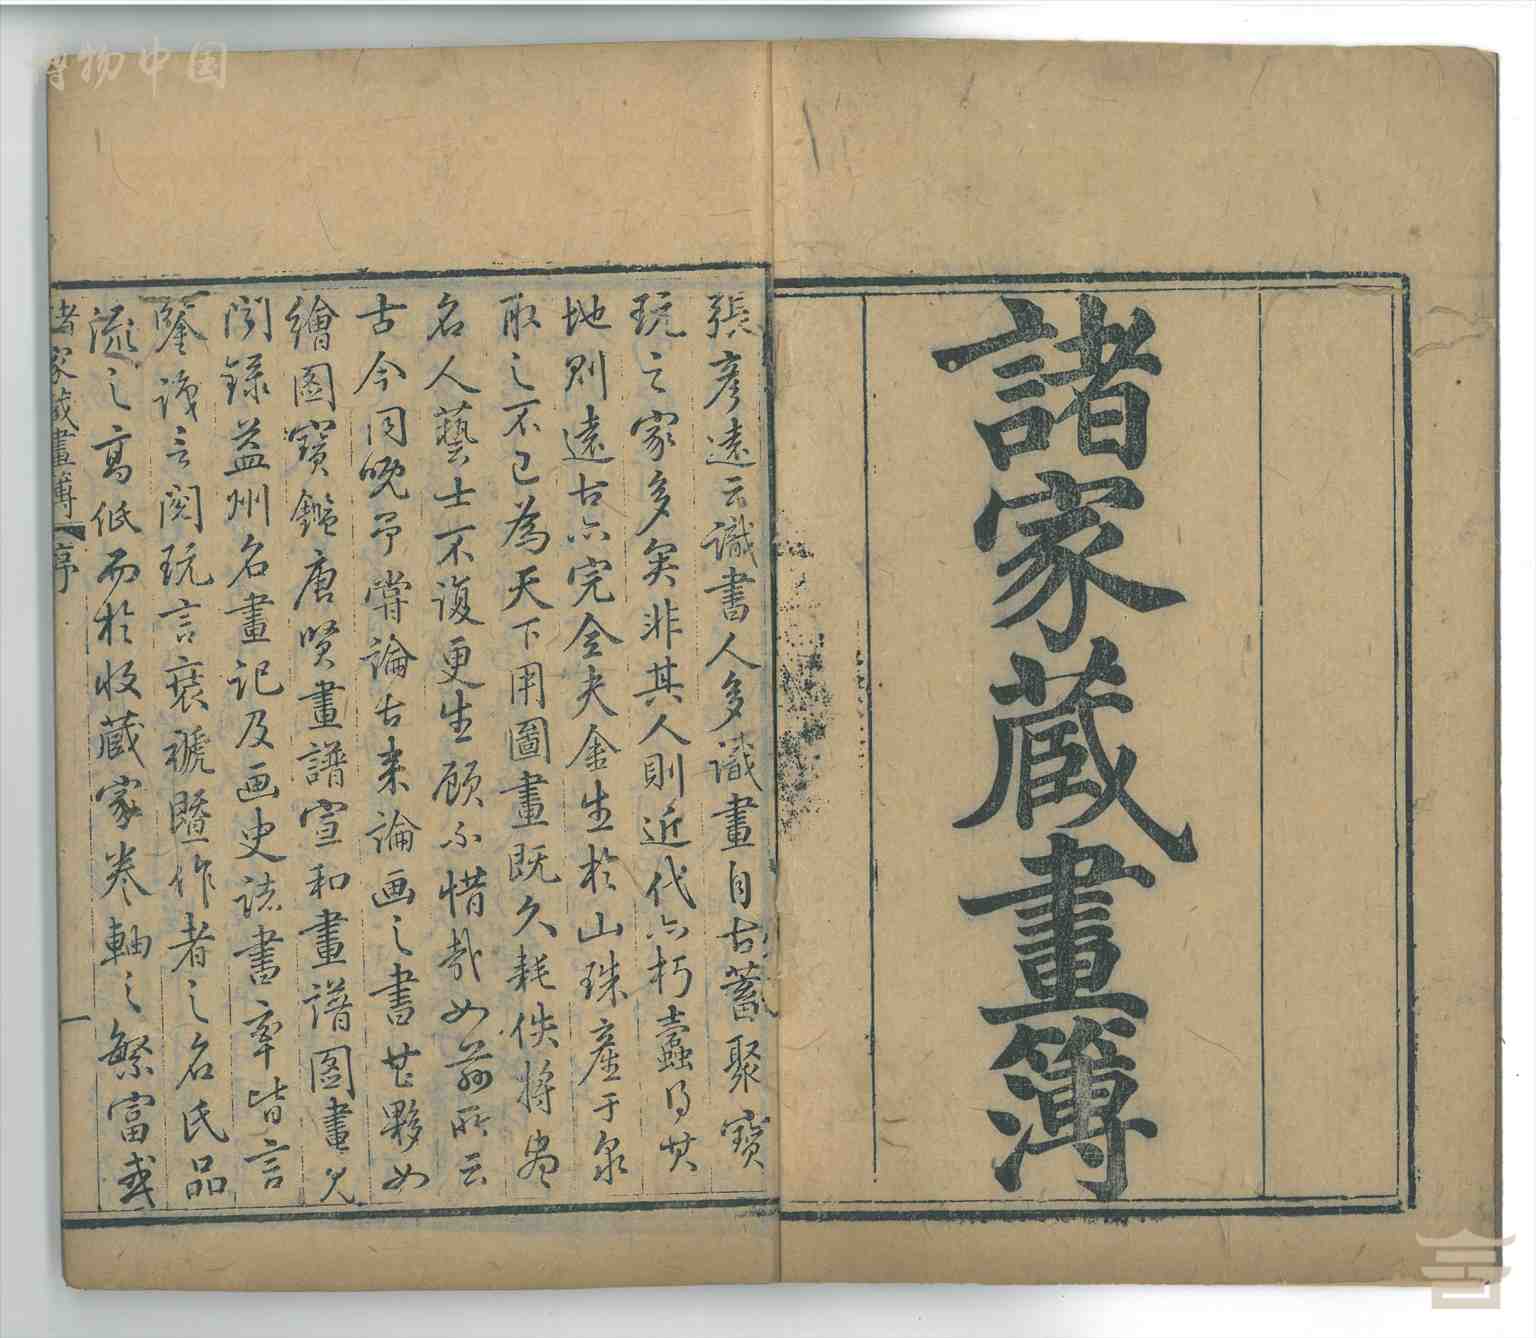 諸家藏畫簿
張彦遠云識書人多識畫自古蓄聚寶
玩之家多矣非其人則近代亦朽蠹得其
地則遠古亦完全夫金生於山珠産于泉
取之不已為天下用圖畫既久耗佚將盡
名人藝士不復更生顧不惜哉如前所云
古今同晩予嘗論古来論画之書甚夥如
繪图寶鑑唐賢畫譜宣和畫譜图畫見
聞錄益州名畫記及画史諸書率皆言
鉴識言閲玩言裱褫暨作者之名氏品
流之高低而於收蔵家巻軸之繁富或
諸家藏畫簿 序 一
博物中国